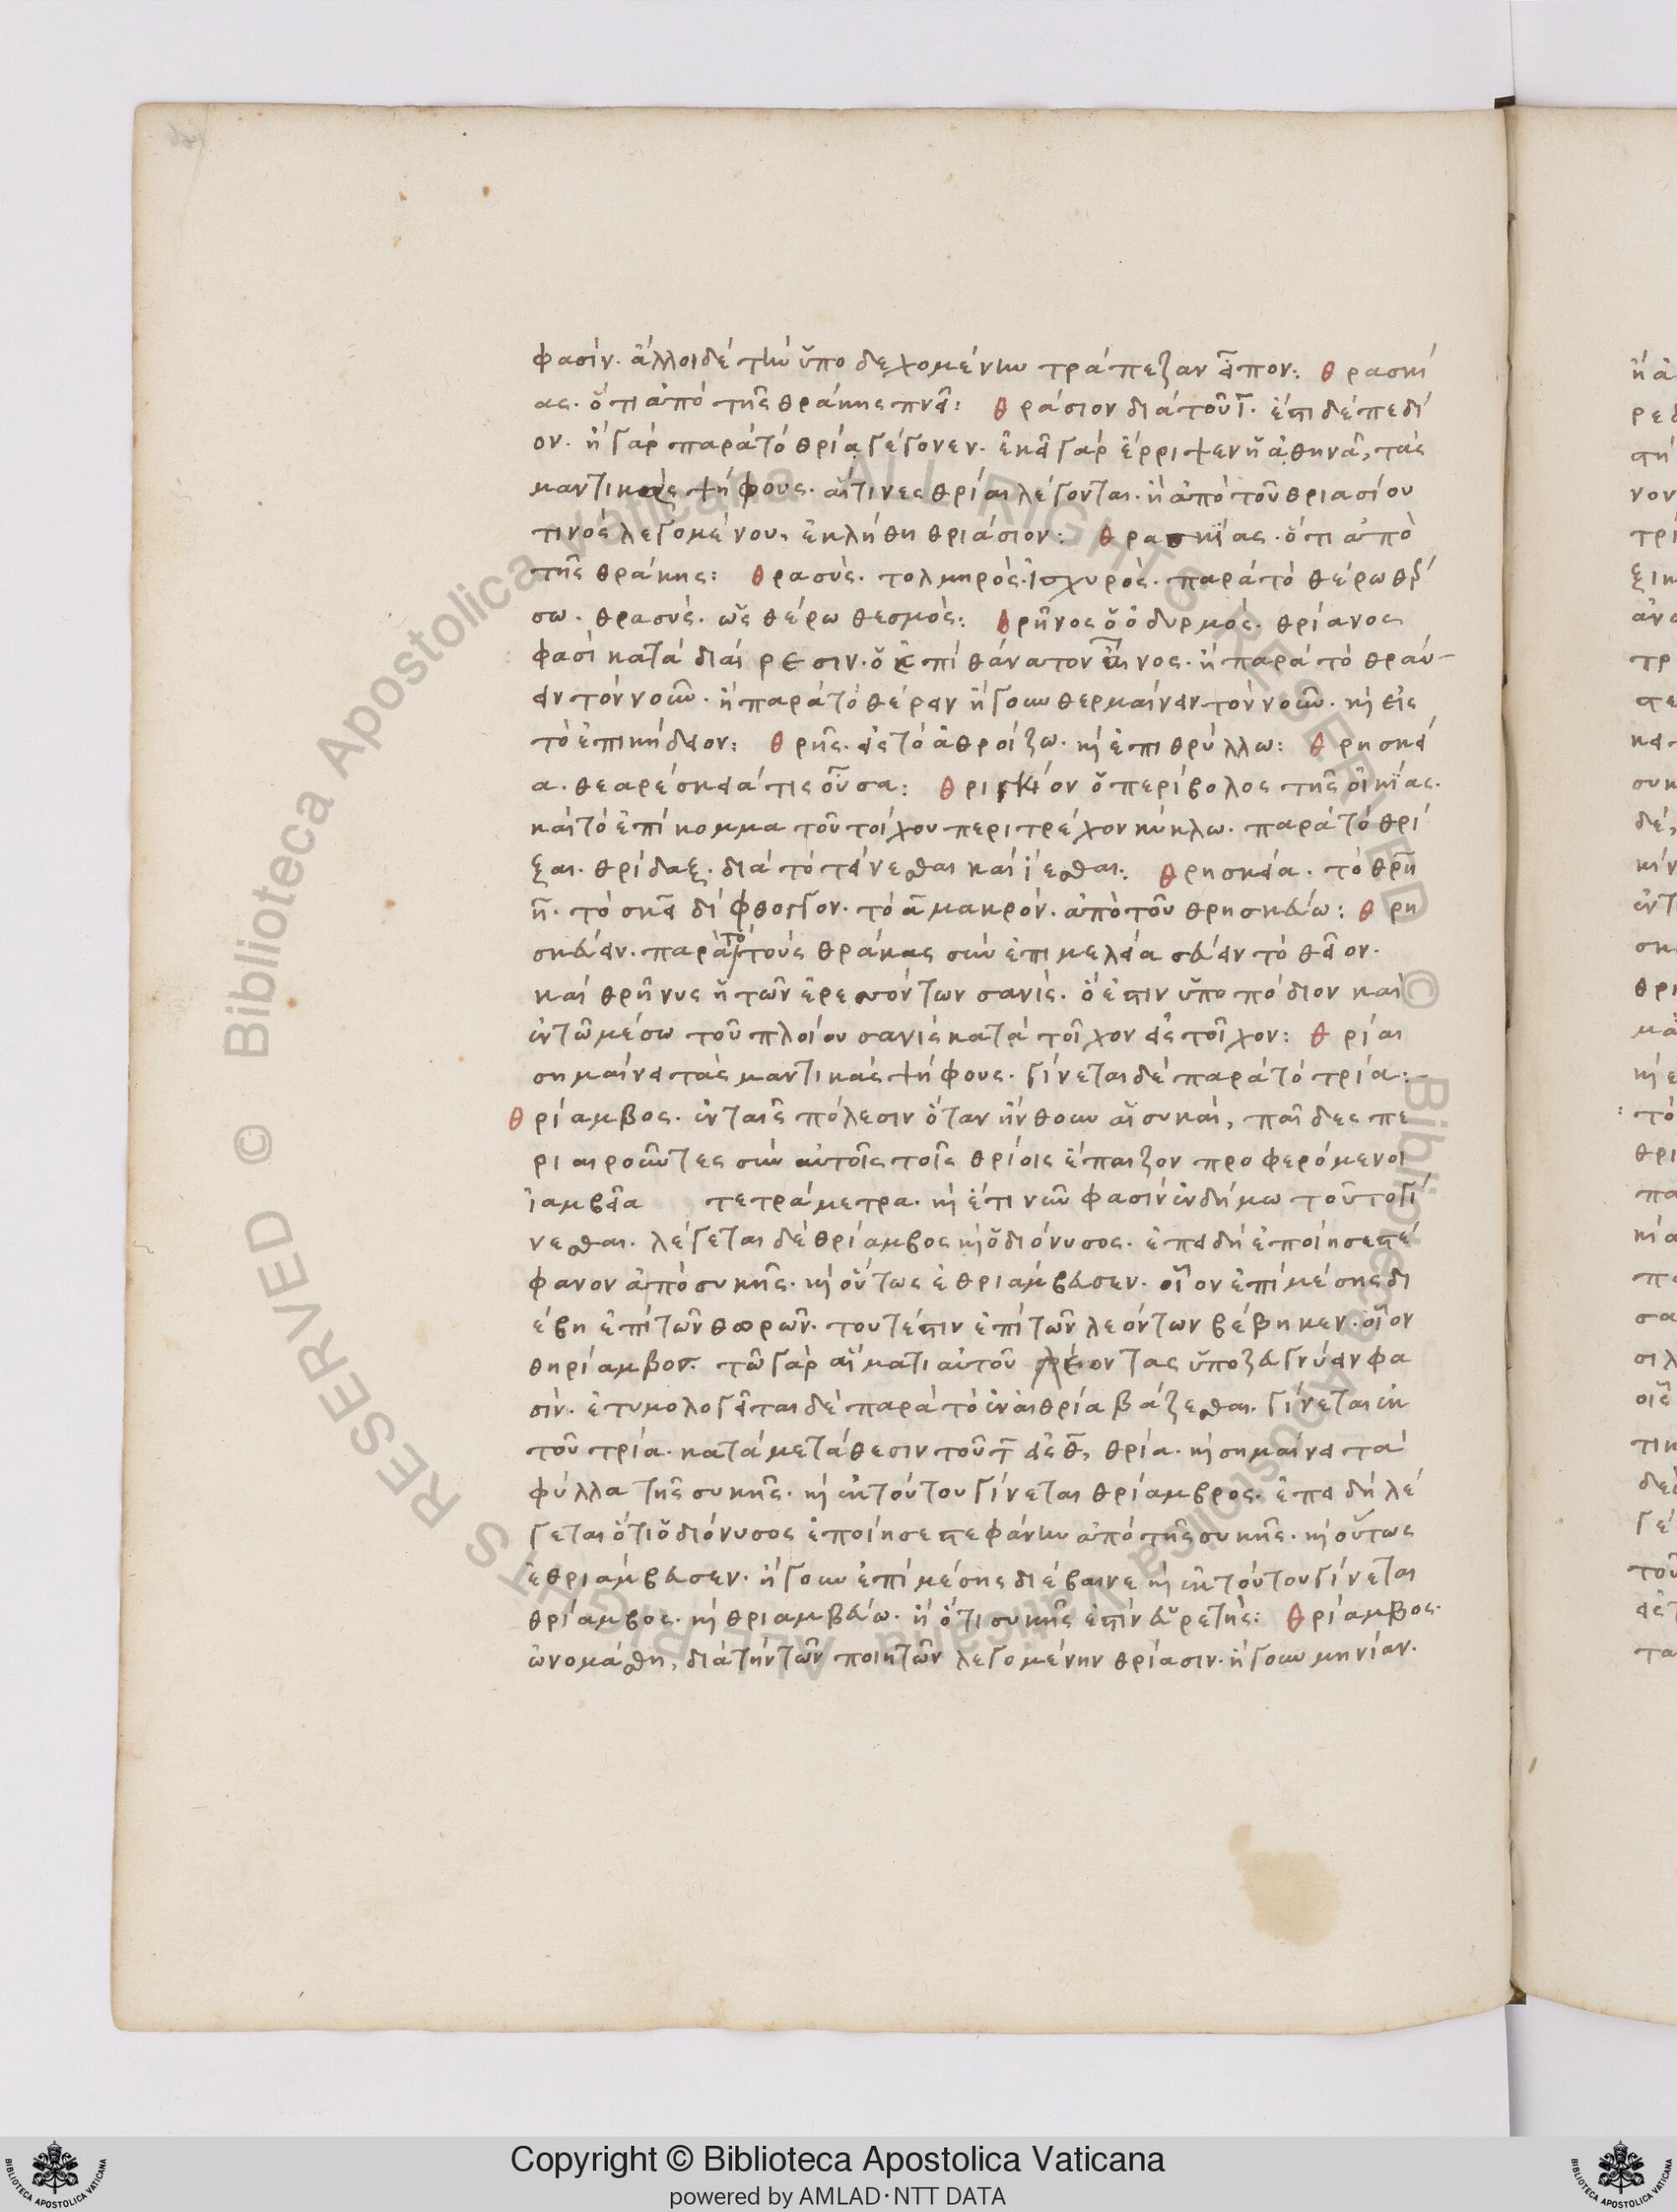 φασίν. ἄλλοι δὲ τὴν ὑποδεχομένην τράπεζαν εἶπον: θρασκί
ας. ὅτι ἀπὸ τῆς θράκης πνεῖ: θράσιον διὰ τοῦ ϊ. ἔστι δὲ πεδί
ον. ἢ γὰρ παρὰ τὸ θρία γέγονεν. ἐκεῖ γὰρ ἔρριψεν ἡ ἀθηνᾶ, τὰς
μαντικὰς ψήφους. αἵτινες θρίαι λέγονται. ἢ ἀπὸ τοῦ θριασίου
τινὸς λεγομένου, ἐκλήθη θριάσιον: θρασκίας. ὅτι ἀπὸ
τῆς θράκης: θρασὺς. τολμηρὸς. ἰσχυρὸς. παρὰ τὸ θέρω θέρ
σω. θρασὺς. ὡς θέρω θεσμὸς: θρῆνος ὁ ὀδυρμὸς. θρίανος
φασὶ κατὰ διαίρεσιν. ὁ ἐπὶ θάνατον αἶνος. ἢ παρὰ τὸ θραύ-
ειν τὸν νοῦν. ἢ παρὰ τὸ θέρειν ἤγουν θερμαίνειν τὸν νοῦν. κὴ εἰς
τὸ ἐπικήδειον: θρῆς. εἰς τὸ ἀθροίζω. κὴ ἐπιθρύλλω: θρησκεί
α. θεαρέσκειά τις οὖσα: θριγκίον ὁ περίβολος τῆς οἰκίας.
καὶ τὸ ἐπίκομμα τοῦ τοίχου περιτρέχον κύκλω. παρὰ τὸ θρί
ξαι. θρίδαξ. διὰ τὸ τείνεσθαι καὶ ἵεσθαι: θρησκεία. τὸ θρη
η. τὸ σκει δίφθογγον. τὸ α μακρόν. ἀπὸ τοῦ θρησκεύω: θρη
σκεύειν. παρὰ τὸ τοὺς θράκας σὺν ἐπιμελεία σέβειν τὸ θεῖον.
καὶ θρῆνυς ἡ τῶν ἐρεσσόντων σανὶς. ὅ ἐστιν ὑποπόδιον καὶ
ἐν τῶ μέσω τοῦ πλοίου σανὶς κατὰ τοῖχον εἰς τοῖχον: θρίαι
σημαίνει τὰς μαντικὰς ψήφους. γίνεται δὲ παρὰ τὸ τρία:-
θρίαμβος. ἐν ταῖς πόλεσιν ὅταν ἤνθουν αἱ συκαῖ, παῖδες πε
ριαιροῦντες σὺν αὐτοῖς τοῖς θρίοις ἔπαιζον προφερόμενοι
ἰαμβεῖα τετράμετρα. κὴ ἔτι νῦν φασὶν ἐν δήμω τοῦτο γί
νεσθαι. λέγεται δὲ θρίαμβος κὴ ὁ διόνυσος. ἐπειδὴ ἐποίησε στέ
φανον ἀπὸ συκῆς. κὴ οὕτως ἐθριάμβευσεν. οἷον ἐπὶ μέσης δι
έβη ἐπὶ τῶν θηρῶν. τουτέστιν ἐπὶ τῶν λεόντων βέβηκεν. οἷον
θηρίαμβος. τῶ γὰρ αἵματι αὐτοῦ λέοντας ὑποζευγνύειν φα
σὶν. ἐτυμολογεῖται δὲ παρὰ τὸ ἐν αἰθρία βάζεσθαι. γίνεται ἐκ
τοῦ τρία. κατὰ μετάθεσιν τοῦ τ εἰς θ, θρία. κὴ σημαίνει τὰ
φύλλα τῆς συκῆς. κὴ ἐκ τούτου γίνεται θρίαμβρος. ἐπειδὴ λέ
γεται ὅτι ὁ διόνυσος ἐποίησε στεφάνην ἀπὸ τῆς συκῆς. κὴ οὕτως
ἐθριάμβευσεν. ἤγουν ἐπὶ μέσης διέβαινε κὴ ἐκ τούτου γίνεται
θρίαμβος. κὴ θριαμβεύω. ἢ ὅτι συκῆς ἐστὶν εὑρετὴς: θρίαμβος.
ὠνομάσθη, διὰ τὴν τῶν ποιητῶν λεγομένην θρίασιν. ἤγουν μηνίαν.
Copyright © Biblioteca Apostolica Vaticana
powered by AMLAD·NTT DATA